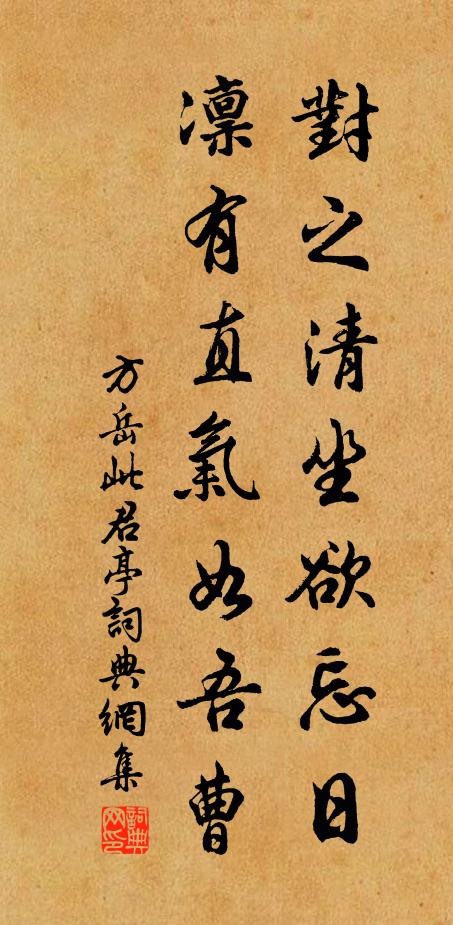 對之清坐欲忘日
凜有直氣如吾曹
方岳此君亭詞典網集
詞典網印